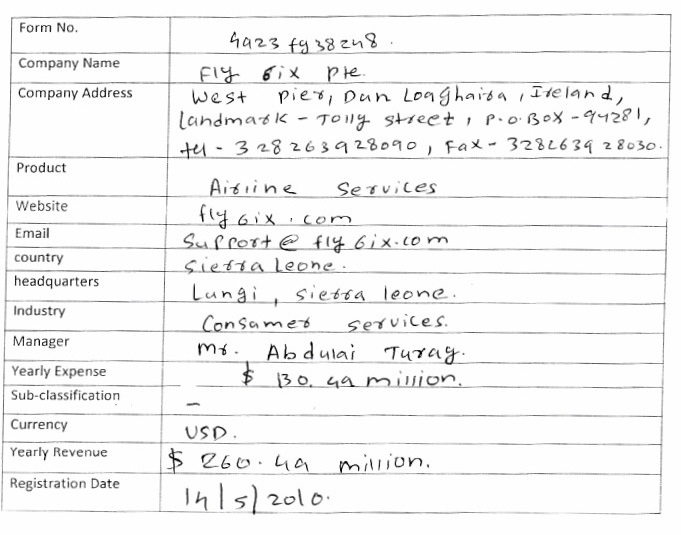 Form No. 4923fg38248.
Company Name Fly 6ix Plc.
Company Address West Pier, Dun Loaghaira, Ireland,
Landmark - Tolly street, P.O.BOX - 94281,
tel - 328263928090, Fax - 328263928030.
Product Airline Services
Website fly6ix.com
Email Support@fly6ix.com
country Sierra Leone.
headquarters Lungi, sierra leone.
Industry Consamer services.
Manager Mr. Abdulai Turay.
Yearly Expense $ 130.49 million.
Sub-classification –
Currency USD.
Yearly Revenue $ 260.49 million.
Registration Date 14/5/2010.